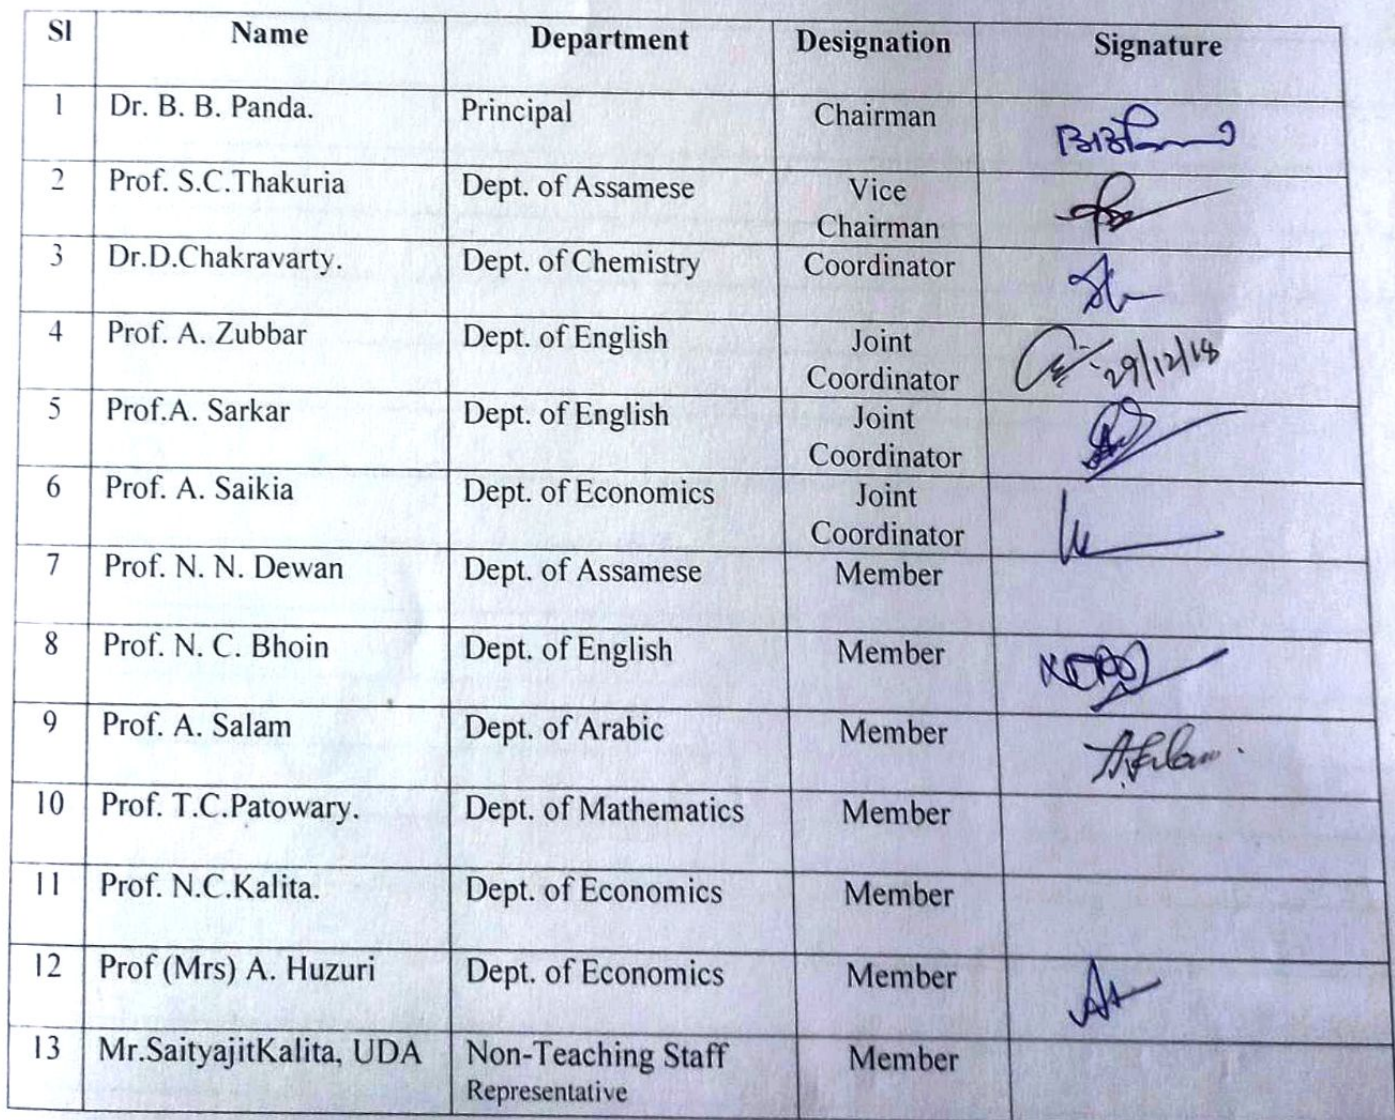 Sl Name Department Designation Signature
1 Dr. B. B. Panda. Principal Chairman
2 Prof. S.C.Thakuria Dept. of Assamese Vice
Chairman
3 Dr.D.Chakravarty. Dept. of Chemistry Coordinator
4 Prof. A. Zubbar Dept. of English Joint
Coordinator 29/12/18
5 Prof.A. Sarkar Dept. of English Joint
Coordinator
6 Prof. A. Saikia Dept. of Economics Joint
Coordinator
7 Prof. N. N. Dewan Dept. of Assamese Member
8 Prof. N. C. Bhoin Dept. of English Member
9 Prof. A. Salam Dept. of Arabic Member
10 Prof. T.C.Patowary. Dept. of Mathematics Member
11 Prof. N.C.Kalita. Dept. of Economics Member
12 Prof (Mrs) A. Huzuri Dept. of Economics Member
13 Mr.SaityajitKalita, UDA Non-Teaching Staff Member
Representative